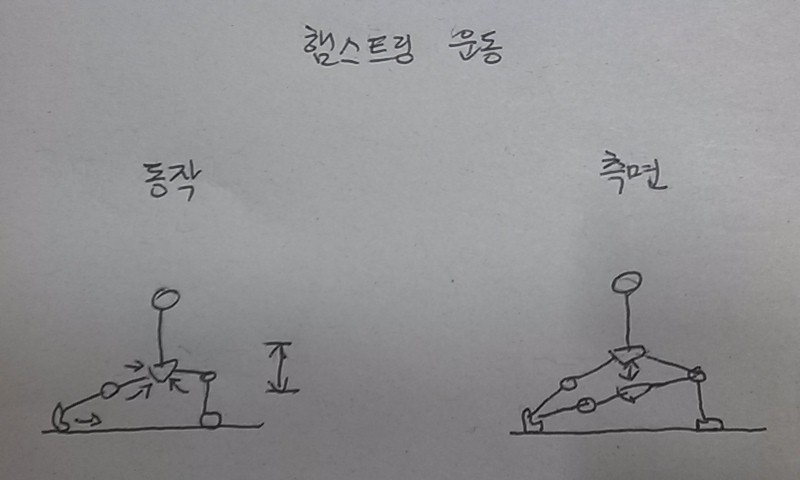 햄스트링 운동
동작
측면